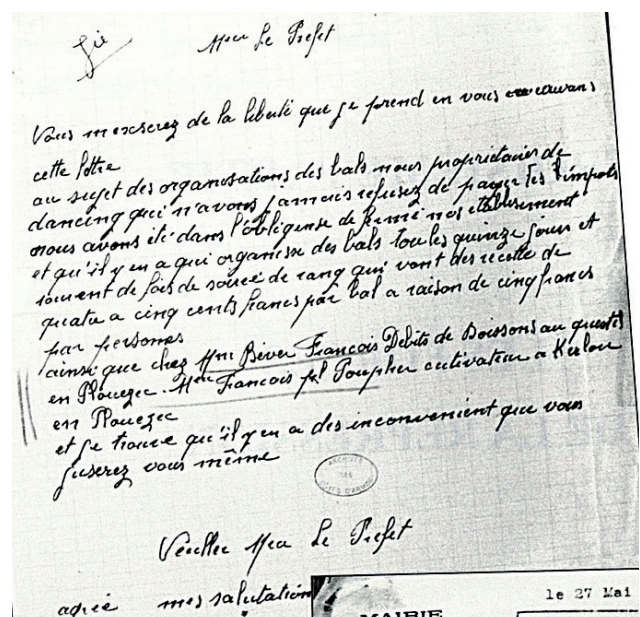 Mr Le Prefet
Vous mexcserez de la liberté que je prend en vous ecrivans
cette lettre
au sujet des organisations des bals nous propriétaire de
dancing qui n'avons jamais refusez de payer les impots
nous avons été dans l'obligense de fermé nos etablisement
et qu'il y en a qui organise des bals tou les quinze jours et
souvent de fois de soirée de rang qui vont des recette de
quatre a cinq cents francs par bal a raison de cinq francs
par persones
ainsi que chez Mr Béver Francois Debits de Boissons au
en Plouezec Mr Francois Poupher cutivateur a Kerlou
en Plouezec
et je trouve qu'il y en a des inconvenient que vous
juserez vous même
ARCHIVES
DES
COTES D'ARMOR
Veuller Mr Le Prefet
agrée mes salutation
le 27 Mai
MAIRIE